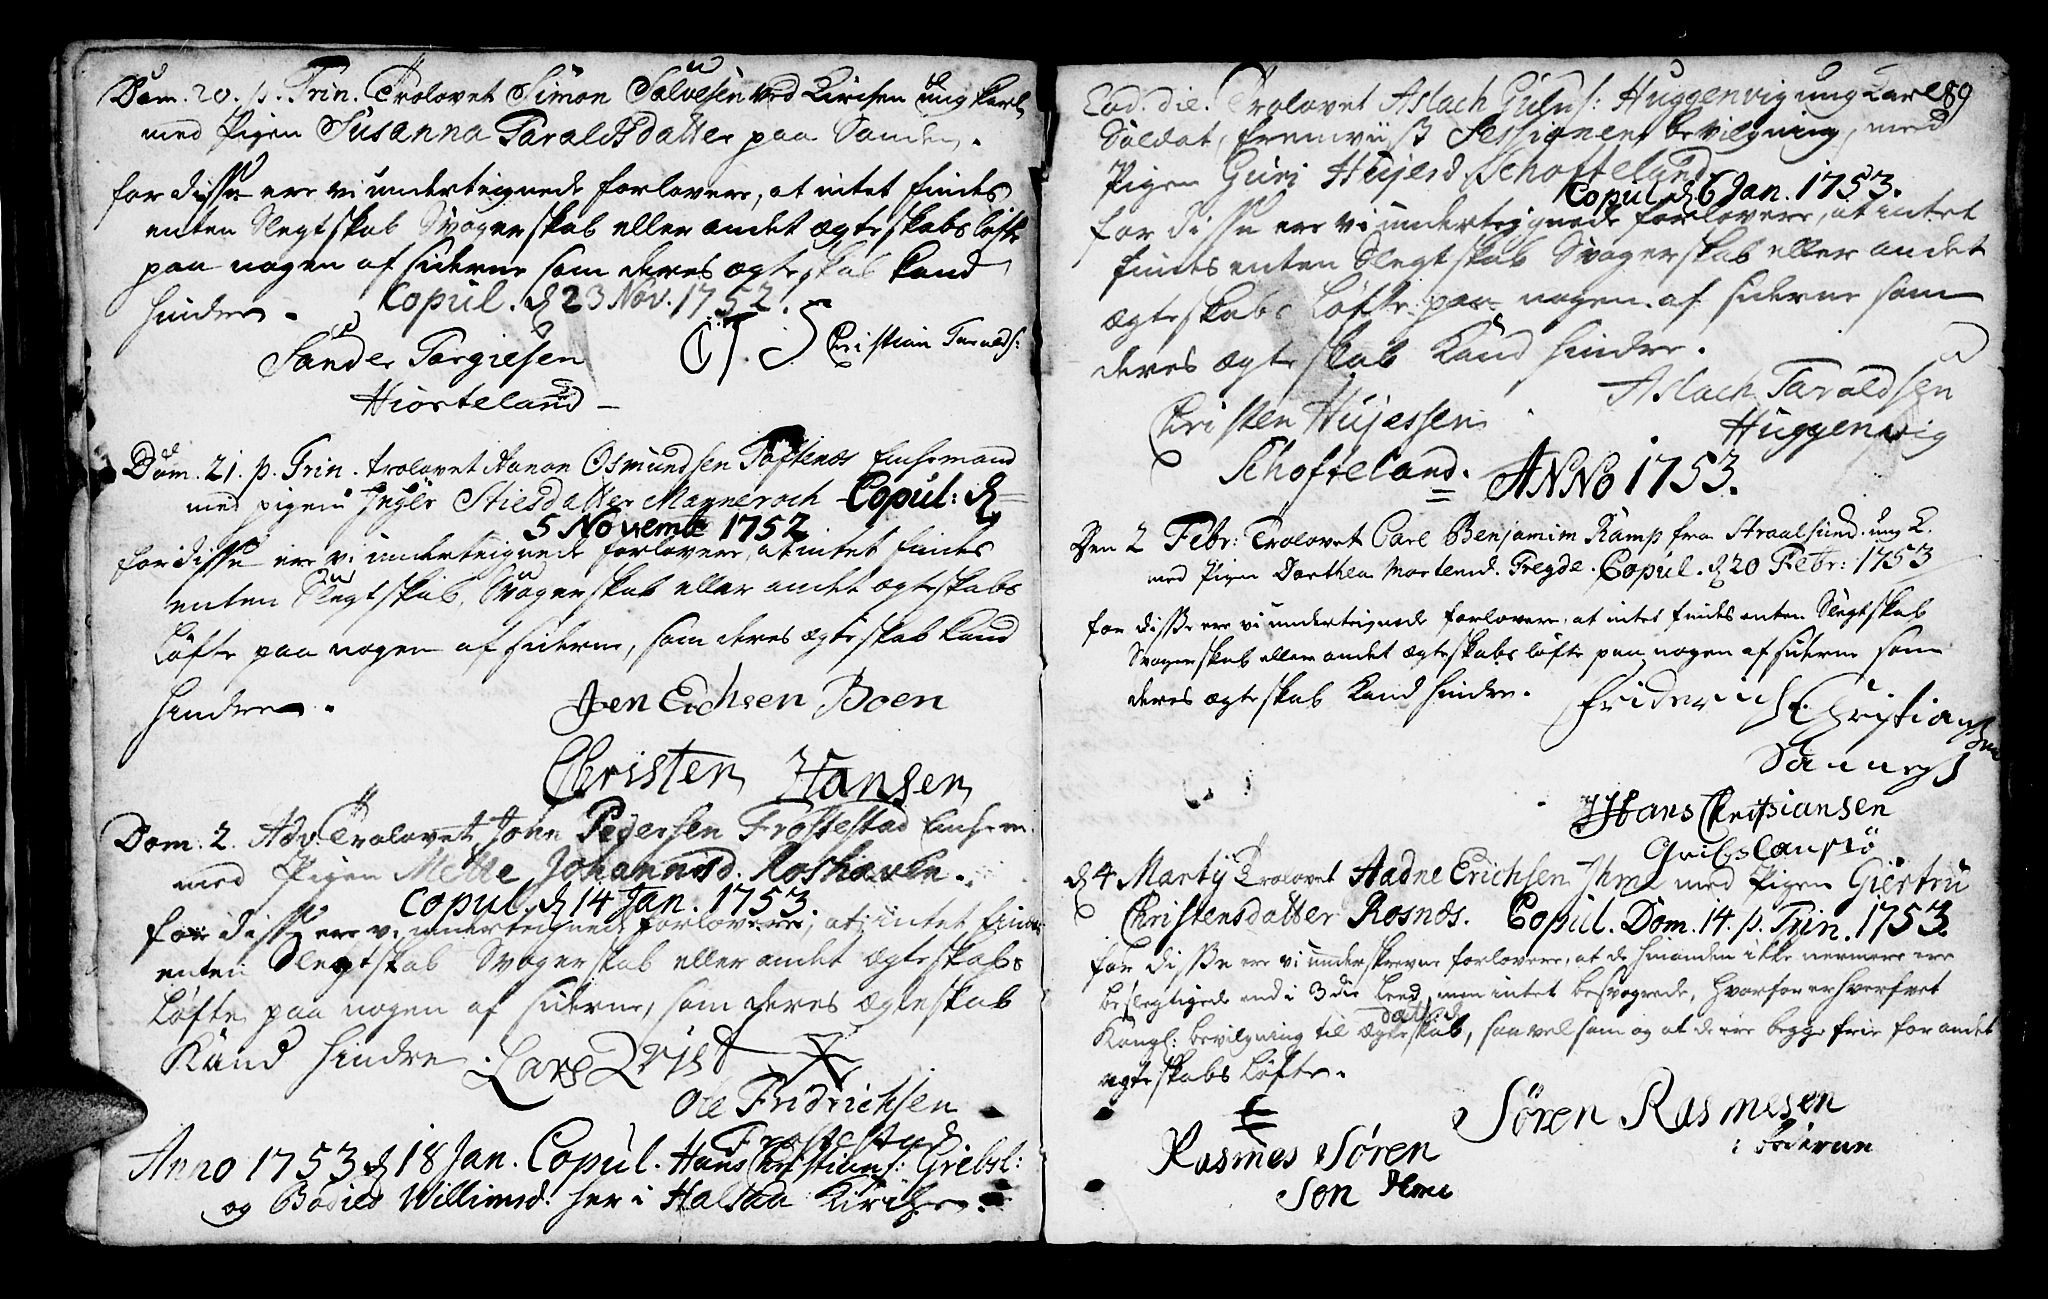 Dom. 20. p. Trin. Trolovet Simon Salvesen ved Kirchen ung karl
med Pigen Susanna Taraldsdatter paa Sanden.
for disse ere vi underteignede forlovere, at intet findes
enten Slegtskab Svogerskab eller andet ægteskabs løfte
paa nogen af siderne som deres ægteskab kand
hindre. Copul. d. 23 Nov. 1752.
Sander Torgiesen
C T. S Christian Taralds:
Hiorteland
Dom. 21. p. Trin. trolovet Aanon Osmundsen Toftenæs Enchemand
med pigen Inger Stiesdatter Manneroch Copul: d.
5 Novemb 1752
for disse ere vi underteignede forlovere, at intet findes
enten Slegtskab, Svogerskab eller andet ægteskabs
Løfte paa nogen af siderne, som deres ægteskab kand
hindre.
Jen Erichsen Boen
Christen Hansen
Dom. 2. Adv. Trolovet John Pedersen Frøstestad Enchem.
med Pigen Mette Johannisd. Roshaven.
Copul. d. 14 Jan. 1753.
for disse ere vi underteignede forlovere, at intet findes
enten Slegtskab Svogerskab eller andet ægteskabs
Løfte paa nogen af siderne, som deres Ægteskab
Kand hindre. Lars
Ole Fridrichsen
Frøstestad
Anno 1753 d. 18 Jan. Copul. Hans Christians: Gribsl:
og Bodild Willumsd. her i Halsaa Kirche.
89
Eod. die. Trolovet Aslach Guluf: Huggenvig ung Karl
Soldat, fremviist Sessionens bevilgning, med
Pigen Guri Hujersd. Schofteland
Copul. d. 6 Jan. 1753.
for disse ere vi underteignede forlovere, at intet
findes enten Slegtskab Svogerskab eller andet
ægteskabs Løfte paa nogen af siderne som
deres ægteskab kand hindre.
Aslach Taraldsen
Christen Hujessen
Huggenvig
Schofteland.
ANNO 1753.
Den 2 Febr: Trolovet Carl Benjamim Kamp fra Straalsund. ung K.
med Pigen Dorthea Mortensd. Tregde. Copul. d. 20 Febr: 1753
for disse ere vi underteignede forlovere, at intet findes enten Slegtskab
Svogerskab eller andet ægteskabs løfte paa nogen af siderne som
deres ægteskab kand hindre.
Friderich Christiansen
Hans Christiansen
d. 4 Martij Trolovet Aadne Erichsen Ihme med Pigen Giertru
Christensdatter Rosnæs. Copul. Dom. 14. p. Trin. 1753.
for disse ere vi underskrevne forlovere, at de hinanden ikke nermere ere
beslegtigede end i 3die Leed, men intet besvogrede, hvorfor erhvervet
Kongl: bevilgning til Ægteskab, saavelsom og at de ere begge frie for andet
ægteskabs Løfte.
Søren Rasmesen
Rasmes Søren
Søn Ihme